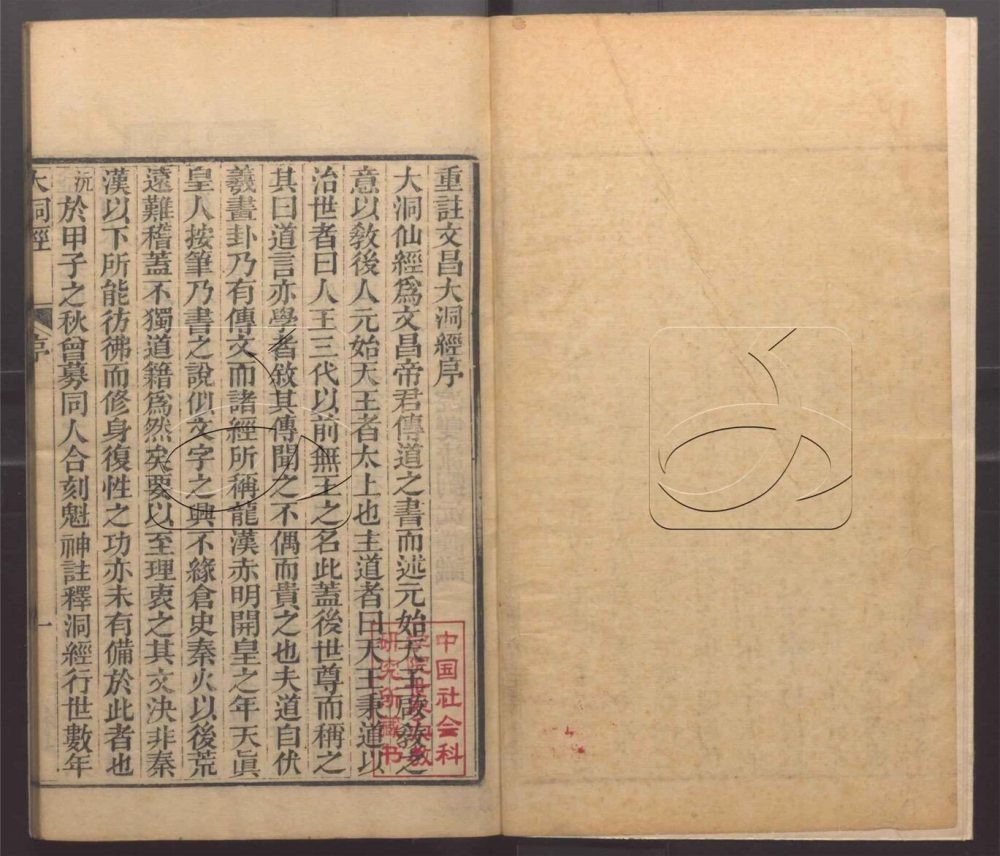 重註文昌大洞經序
大洞仙經爲文昌帝君傳道之書而述元始天王啟教之
意以敎後人元始天王者太上也主道者曰天王秉道以
治世者曰人王三代以前無王之名此蓋後世尊而稱之
其曰道言亦學者敘其傳聞之不偶而貴之也夫道自伏
羲畫卦乃有傳文而諸經所稱龍漢赤明開皇之年天眞
皇人按筆乃書之說似文字之興不緣倉史秦火以後荒
遠難稽蓋不獨道籍爲然矣要以至理衷之其文決非秦
漢以下所能彷彿而修身復性之功亦未有備於此者也
沅於甲子之秋曾募同人合刻魁神註釋洞經行世數年
大洞經
序
一
中国社会科
学院世界宗教
研究所藏书